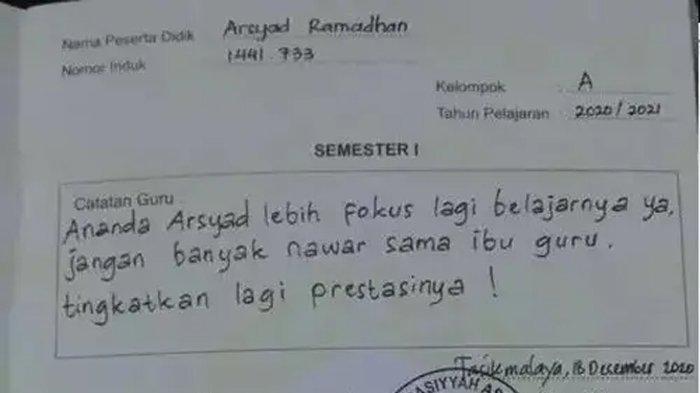 Nama Peserta Didik Arsyad Ramadhan
Nomor Induk 1441.733
Kelompok A
Tahun Pelajaran 2020/2021
SEMESTER I
Catatan Guru
Ananda Arsyad lebih fokus lagi belajarnya ya,
jangan banyak nawar sama ibu guru.
tingkatkan lagi prestasinya !
Tasikmalaya, 18 Desember 2020